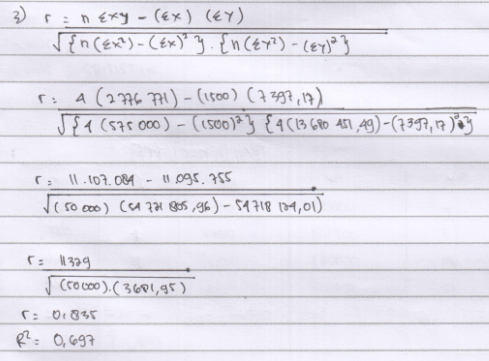 3) r = n Σxy - (Σx) (Σy)
√{n(Σx²) - (Σx)²} . {n(Σy²) - (Σy)²}
r = 4 (2776 771) - (1500) (7397,17)
√{4 (575 000) - (1500)²} {4(13 680 451,49) - (7397,17)²}
r = 11.107.084 - 11.095.755
√(50 000) (54 721 805,96) - 54718 124,01)
r = 11329
√(50000).(3681,95)
r = 0,835
R² = 0,697